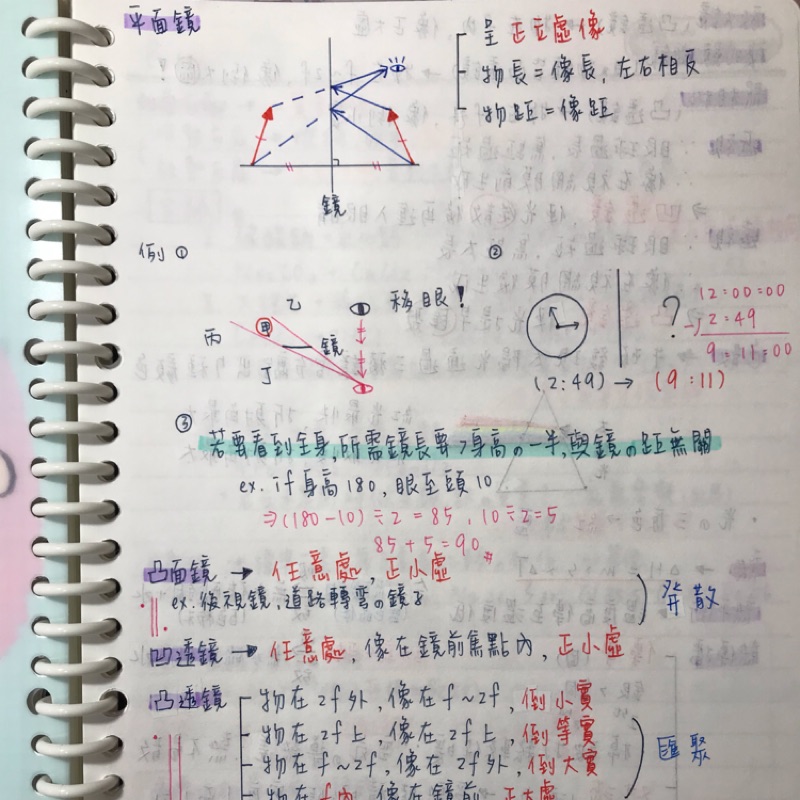 平面鏡
呈 正立虛像
物長=像長,左右相反
物距=像距
鏡
例 ①
乙
丙
甲
鏡
丁
移眼!
②
?
12:00:00
-) 2:49
9:11:00
(2:49) → (9:11)
③
若要看到全身,所需鏡長要>身高の一半,與鏡の距無關
ex. if 身高180, 眼至頭10
⇒(180-10)÷2=85, 10÷2=5
85+5=90#
凸面鏡 → 任意處,正小虛
ex.後視鏡,道路轉彎の鏡子
凹透鏡 → 任意處,像在鏡前焦點內,正小虛
發散
凸透鏡
物在2f外,像在f~2f,倒小實
物在2f上,像在2f上,倒等實
物在f~2f,像在2f外,倒大實
物在f內,像在鏡前,正大虛
匯聚